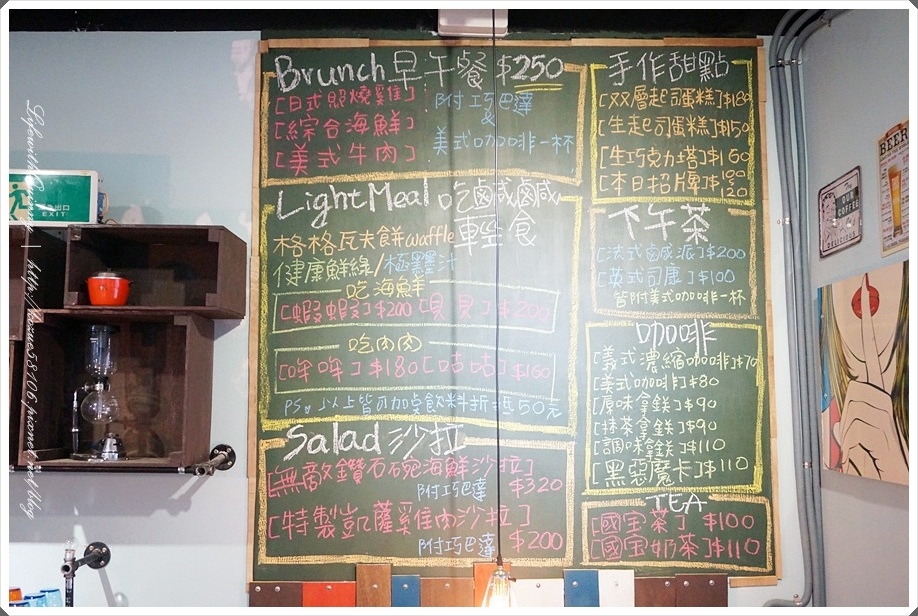 Brunch 早午餐 $250
[日式照燒雞]
[綜合海鮮]
[美式牛肉]
附巧巴達
&
美式咖啡一杯
Light Meal 吃鹹鹹
輕食
格格瓦夫餅waffle
健康鮮綠/極墨汁
吃海鮮
[蝦蝦]$200 [貝貝]$200
吃肉肉
[哞哞]$180 [咕咕]$160
PS.以上皆可加點飲料折抵50元
Salad 沙拉
[無敵鑽石碗海鮮沙拉]
附巧巴達 $320
[特製凱薩雞肉沙拉]
附巧巴達 $200
手作甜點
[双層起司蛋糕]$180
[生起司蛋糕]$150
[生巧克力塔]$160
[本日招牌]$
120
下午茶
[法式鹹派]$200
[英式司康]$100
皆附美式咖啡一杯
咖啡
[義式濃縮咖啡]$70
[美式咖啡]$80
[原味拿鉄]$90
[抹茶拿鉄]$90
[調味拿鉄]$110
[黑惡魔卡]$110
TEA
[國宝茶] $100
[國宝奶茶]$110
出口
EXIT
OUR
COFFEE
DELICIOUS
BEER